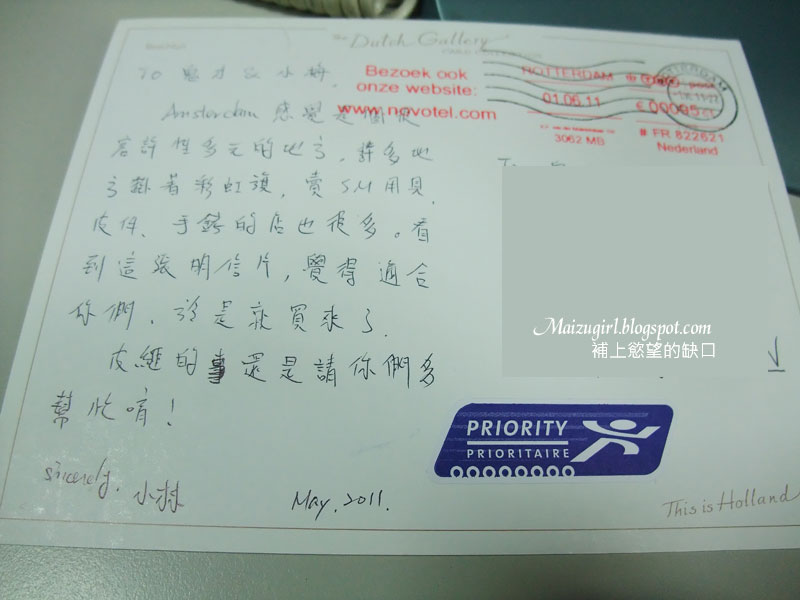 The Dutch Gallery
TO 鬼才以小姆,
Bezoek ook
onze website:
www.novotel.com
ROTTERDAM
01.06.11
3062 MB
# FR 822621
Nederland
Amsterdam 感覺是個很
容許性多元的地方,許多地
方掛著彩虹旗,賣SM用具、
皮件、手銬的店也很多。看
到這張明信片,覺得適合
你們,於是就買來了.
皮繩的事還是請你們多
幫忙唷!
sincerely,
小林
May, 2011.
Maizugirl.blogspot.com
補上慾望的缺口
PRIORITY
PRIORITAIRE
This is Holland